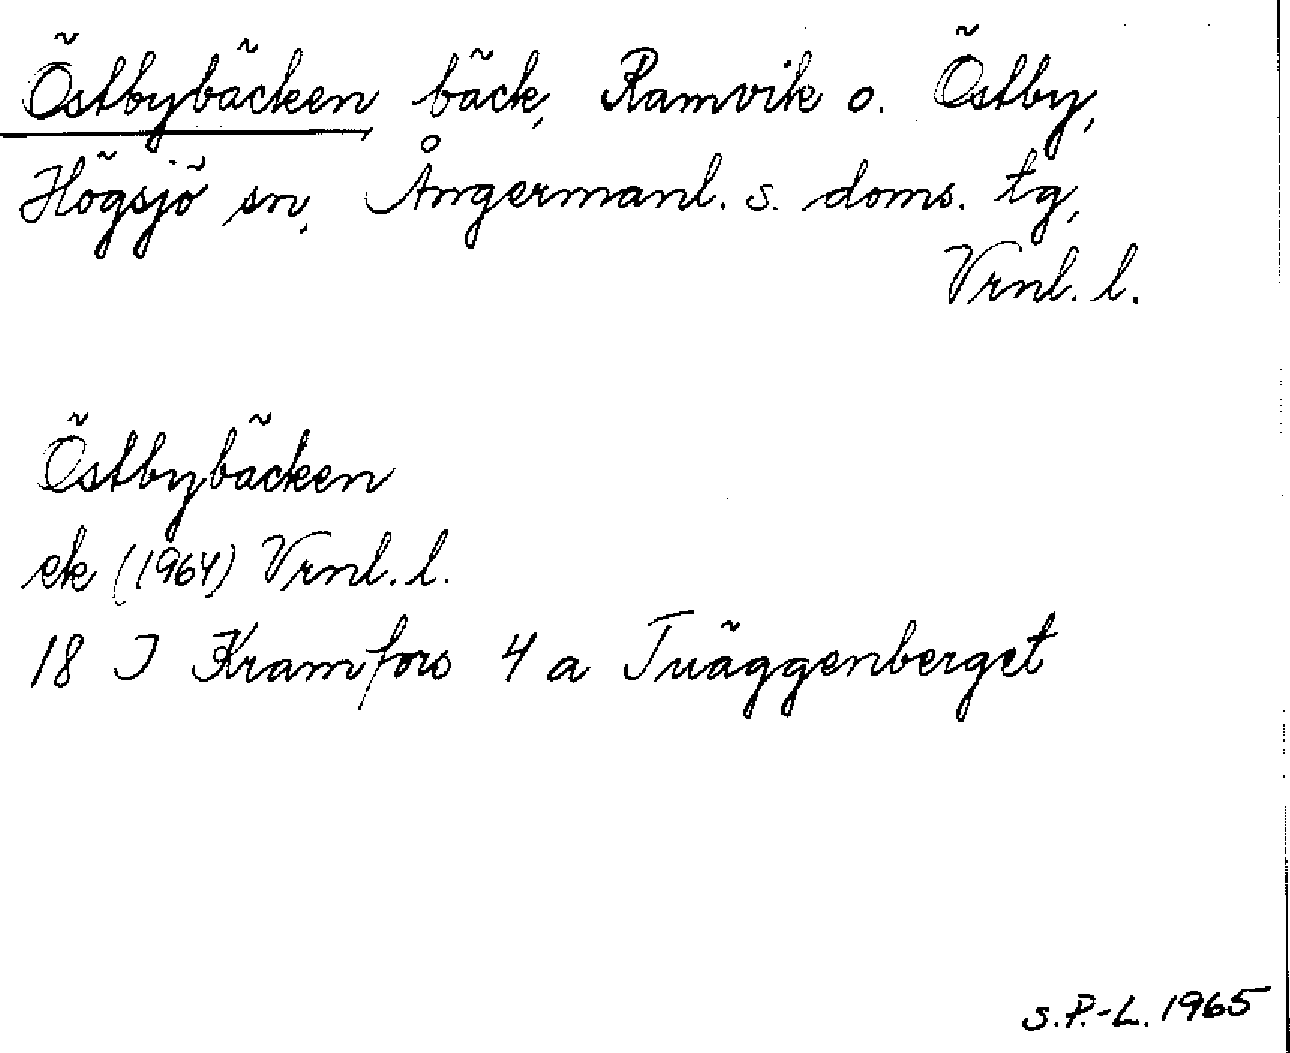 Östbybäcken bäck, Ramvik o. Östby,
Högsjö sn, Ångermanl. s. doms. tg,
Vrnl. l.
Östbybäcken
ek (1964) Vrnl. l.
18 J Kramfors 4 a Tväggenberget
S.P.-L. 1965